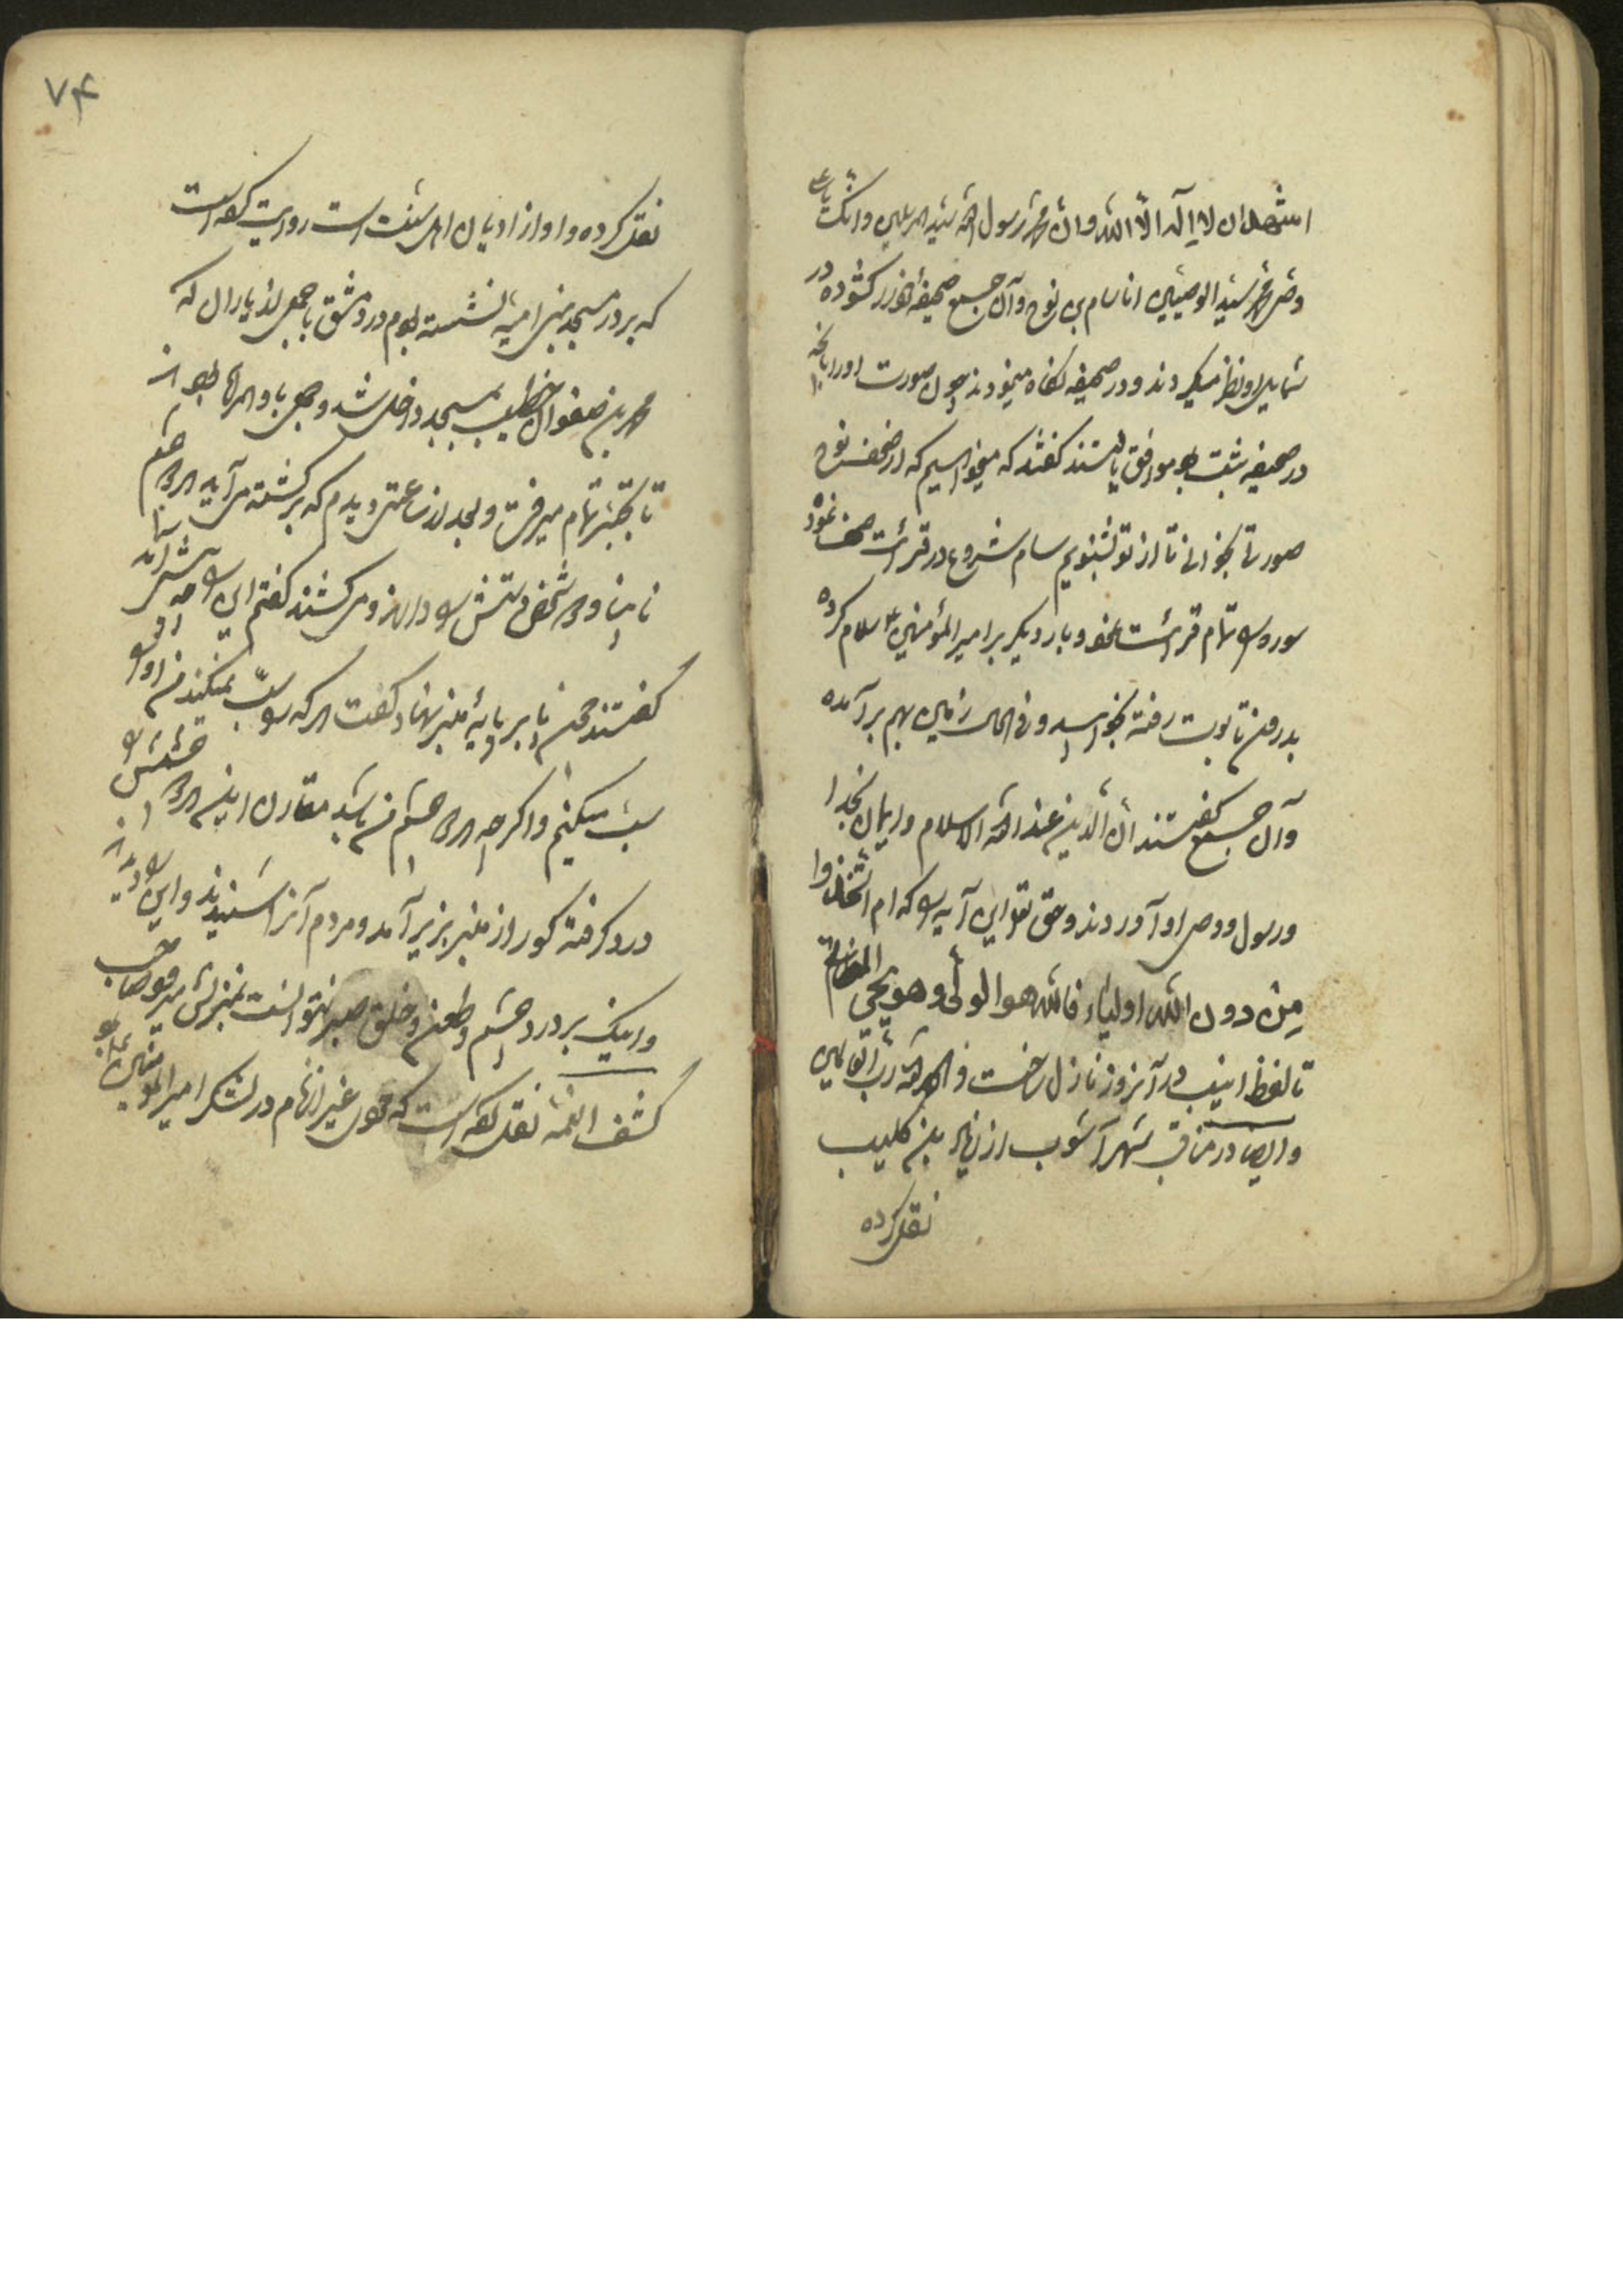 اشهد ان لا اله الا الله وان محمد رسول الله سید المرسلین وانک یا علی
وصی محمد سید الوصیین انا سام بن نوح وآن جمیع صحیفهٔ خود را کشوده در
شمایل او نظر میکردند و در صحیفه نگاه مینمودند چون صورت او را بآنچه
در صحیفه ثبت بود موافق یافتند گفتند که میخواهیم که از صحف نوح
صورتی بخوانی تا از تو بشنویم سام شروع در قرائت صحف نموده
سوره را تمام قرائت نمود و بار دیگر بر امیر المؤمنین ع سلام کرده
بدرون تابوت رفته بخوابید و فی الحال زمین بهم برآمده
وآن جمیع گفتند ان الدین عند الله الاسلام وایمان بخدا
ورسول ووصی او آوردند وحق تعالی این آیه را که ام اتخذوا
من دون الله اولیاء فالله هو الولی وهو یحیی الموتی
تا لفظ انیب در آنروز نازل ساخت والحمد لله رب العالمین
وایضا در مناقب شهر آشوب از زیاد بن کلیب
نقل کرده
۷۴
نقل کرده و او از ادیان اهل سنت است روایت کفه است
که بر در مسجد بنی امیه نشسته بودم در دمشق با جمعی از یاران که
محمد بن صفوان خطیب بمسجد داخل شد و جمعی با او همراه بود از
تا بمنبر تمام میرفت و بعد از ساعتی دیدم که برگشته می آید هر دو چشم
نابینا و دو شخص دستش را دارند و می کشند گفتم این را چه شد
گفتند چون پا بر پایهٔ منبر نهاد گفت هر که را سب نمیکند من او را
سب میکنیم واگرچه هر دو چشم من باشد مقارن این هر دو چشمش را
درد گرفته کور از منبر بزیر آمد و مردم آنرا شنیدند و این را
واینک بر درد چشم وطعن وخلق صبر نتوانست بمنزلش میرفت
کشف الغمه نقل کفه است که چون غیر از تمام در لشکر امیر المؤمنین